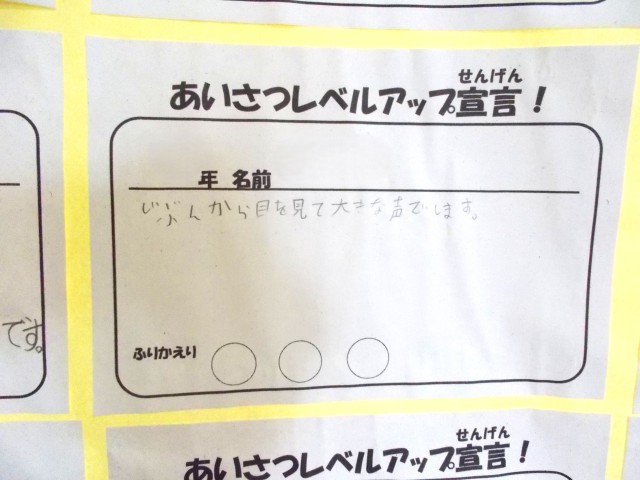 せんげん
あいさつレベルアップ宣言！
年 名前
じぶんから目を見て大きな声でします。
ふりかえり
です。
せんげん
あいさつレベルアップ宣言！